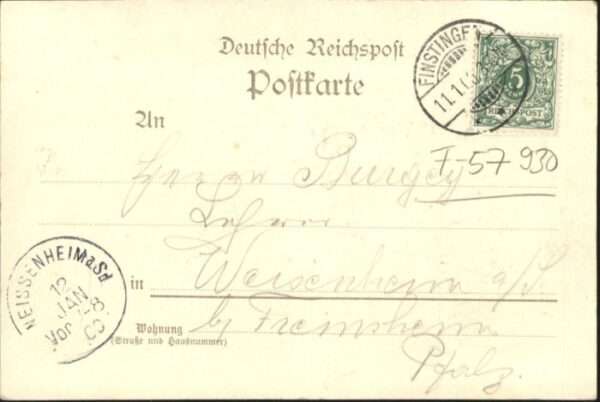 Deutsche Reichspost
Postkarte
FINSTINGEN
5
REICHSPOST
An
F-57 930
Burgey
Lehrer
in Weisenheim a/S.
b/ Freinsheim
Pfalz.
WEISSENHEIM a Sd
12
JAN
Vor 7-8
Wohnung
(Straße und Hausnummer)